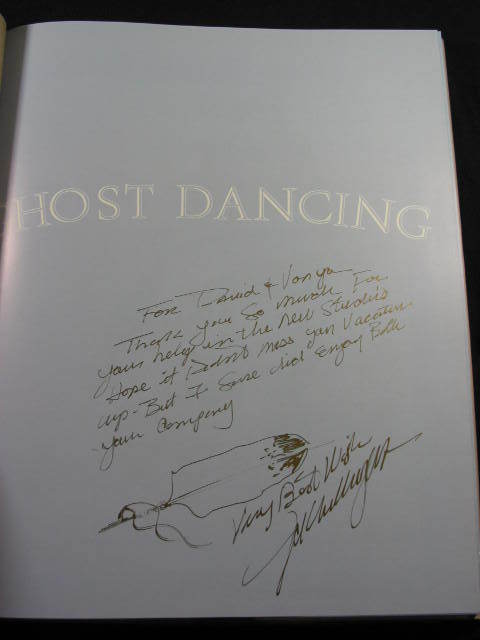 GHOST DANCING
For David & Vonya
Thank you so much For
your help in the new Studio
Hope it Didn't mess your Vacation
up - But I Sure did Enjoy Both
your Company
Very Best Wish